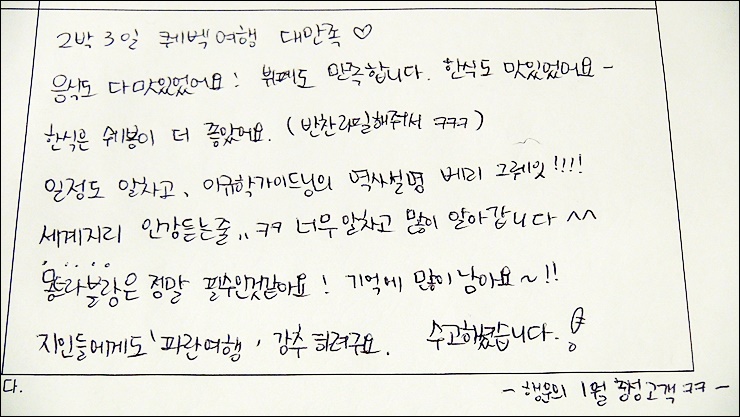 2박 3일 퀘벡여행 대만족 ♡
음식도 다 맛있었어요! 뷔페도 만족합니다. 한식도 맛있었어요 ~
한식은 쉐봉이 더 좋았어요. (반찬리필해줘서 ㅋㅋㅋ)
일정도 알차고, 이규학가이드님의 역사설명 베리 그뤠잇!!!!
세계지리 인강듣는줄,, ㅋㅋ 너무 알차고 많이 알아갑니다 ^^
몽트랑블랑은 정말 필수인것같아요! 기억에 많이 남아요~!!
지인들에게도 '파란여행' 강추 하려구요. 수고하셨습니다.
다.
- 행운의 1월 고객 ㅋㅋ -